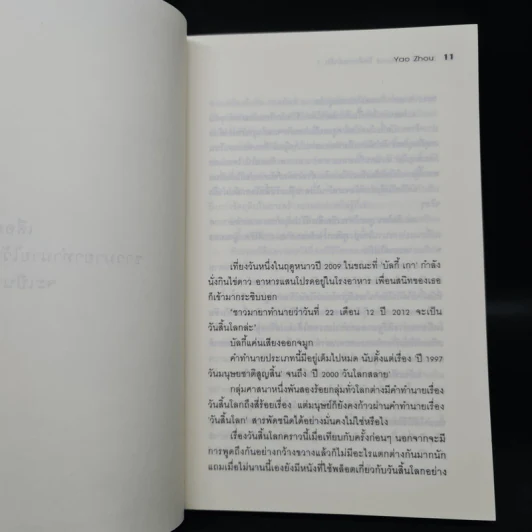 Yao Zhou 11
เที่ยงวันหนึ่งในฤดูหนาวปี 2009 ในขณะที่ 'บัลกี้ เกา' กำลัง
นั่งกินไข่ดาว อาหารแสนโปรดอยู่ในโรงอาหาร เพื่อนสนิทของเธอ
ก็เข้ามากระซิบบอก
'ชาวมายาทำนายว่าวันที่ 22 เดือน 12 ปี 2012 จะเป็น
วันสิ้นโลกล่ะ'
บัลกี้แค่นเสียงออกจมูก
คำทำนายประเภทนี้มีอยู่เต็มไปหมด นับตั้งแต่เรื่อง 'ปี 1997
วันมนุษยชาติสูญสิ้น' จนถึง 'ปี 2000 วันโลกสลาย'
กลุ่มศาสนาหนึ่งพันสองร้อยกลุ่มทั่วโลกต่างมีคำทำนายเรื่อง
วันสิ้นโลกถึงสี่ร้อยเรื่อง แต่มนุษย์ก็ยังคงก้าวผ่านคำทำนายเรื่อง
'วันสิ้นโลก' สารพัดชนิดได้อย่างมั่นคงไม่ใช่หรือไง
เรื่องวันสิ้นโลกคราวนี้เมื่อเทียบกับครั้งก่อนๆ นอกจากจะมี
การพูดถึงกันอย่างกว้างขวางแล้วก็ไม่มีอะไรแตกต่างกันมากนัก
แถมเมื่อไม่นานนี้เองยังมีหนังที่ใช้พล็อตเกี่ยวกับวันสิ้นโลกอย่าง